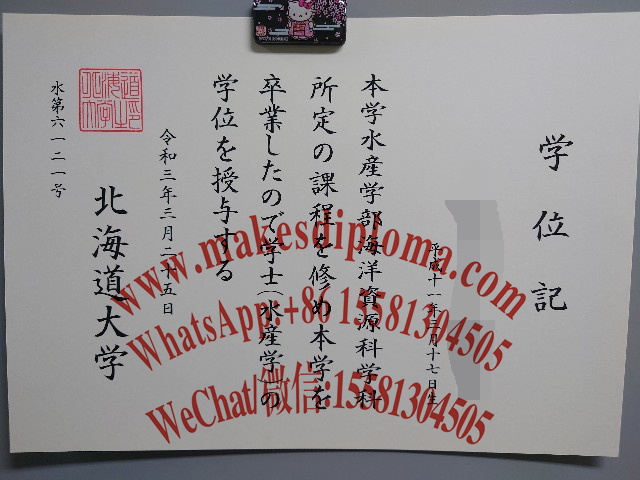 学位記
平成十一年三月十七日生
本学水産学部海洋資源科学科
所定の課程を修め本学を
卒業したので学士(水産学)の
学位を授与する
令和三年三月二十五日
北海道大学
水第六一二一号
www.makesdiploma.com
WhatsApp:+86 15581304505
WeChat/微信:15581304505